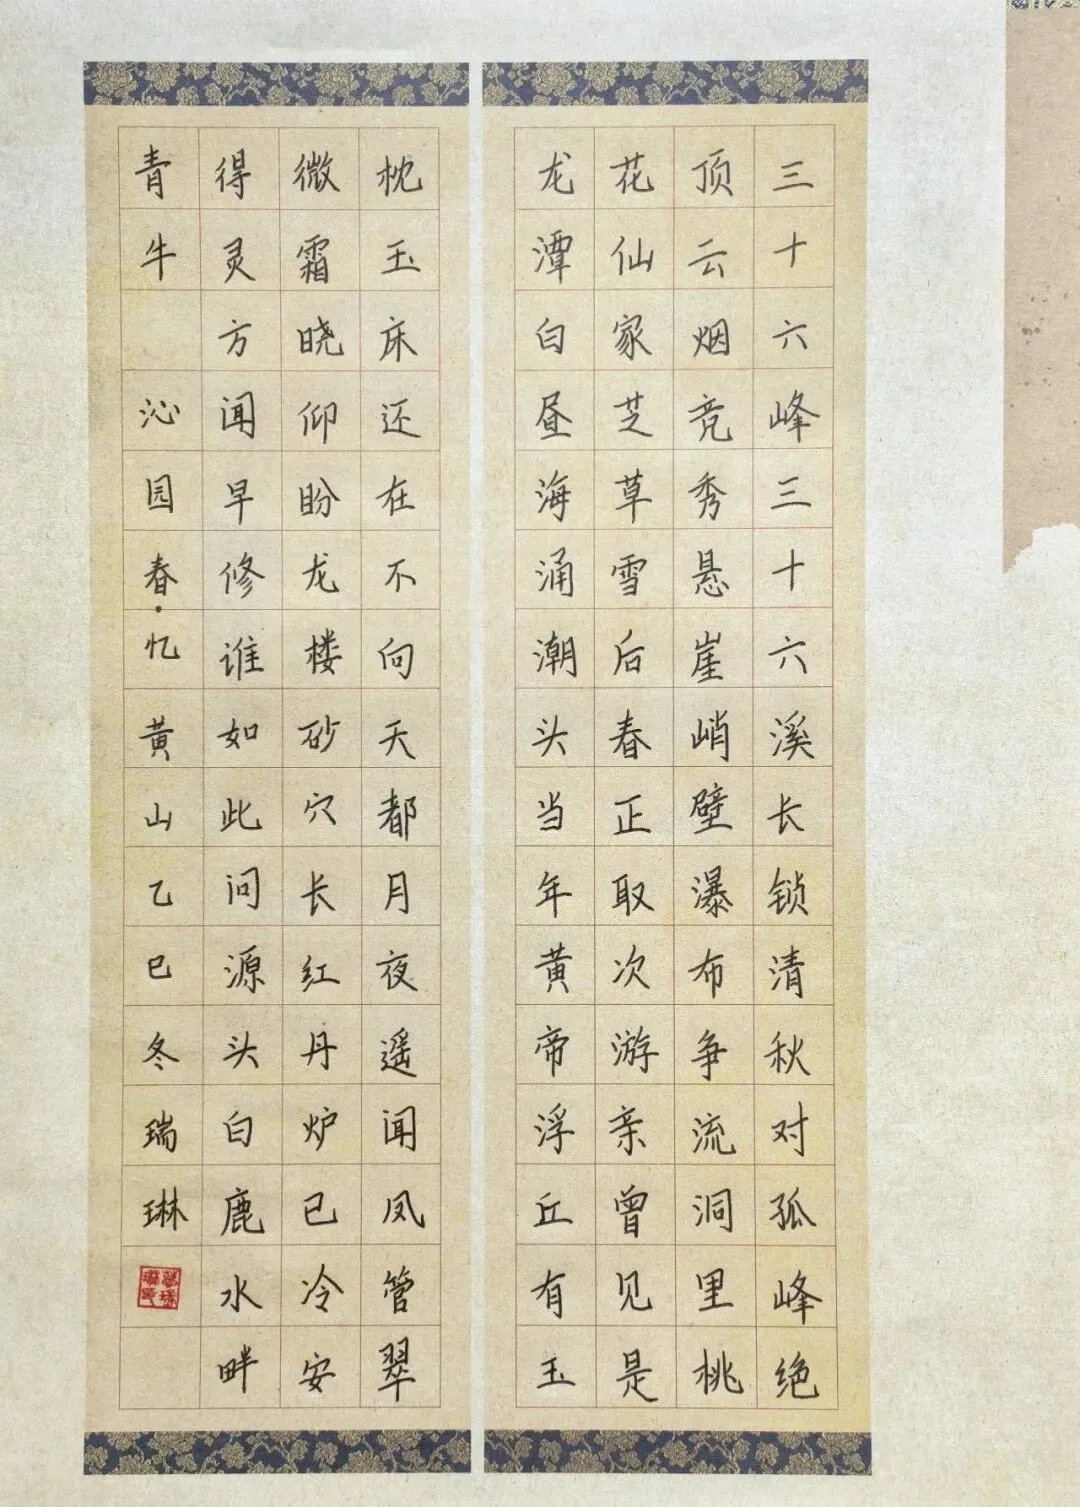 三十六峰三十六溪长锁清秋对孤峰绝
顶云烟竞秀悬崖峭壁瀑布争流洞里桃
花仙家芝草雪后春正取次游亲曾见是
龙潭白昼海涌潮头当年黄帝浮丘有玉
枕玉床还在不向天都月夜遥闻凤管翠
微霜晓仰盼龙楼砂穴长红丹炉已冷安
得灵方闻早修谁如此问源头白鹿水畔
青牛 沁园春·忆黄山乙巳冬瑞琳